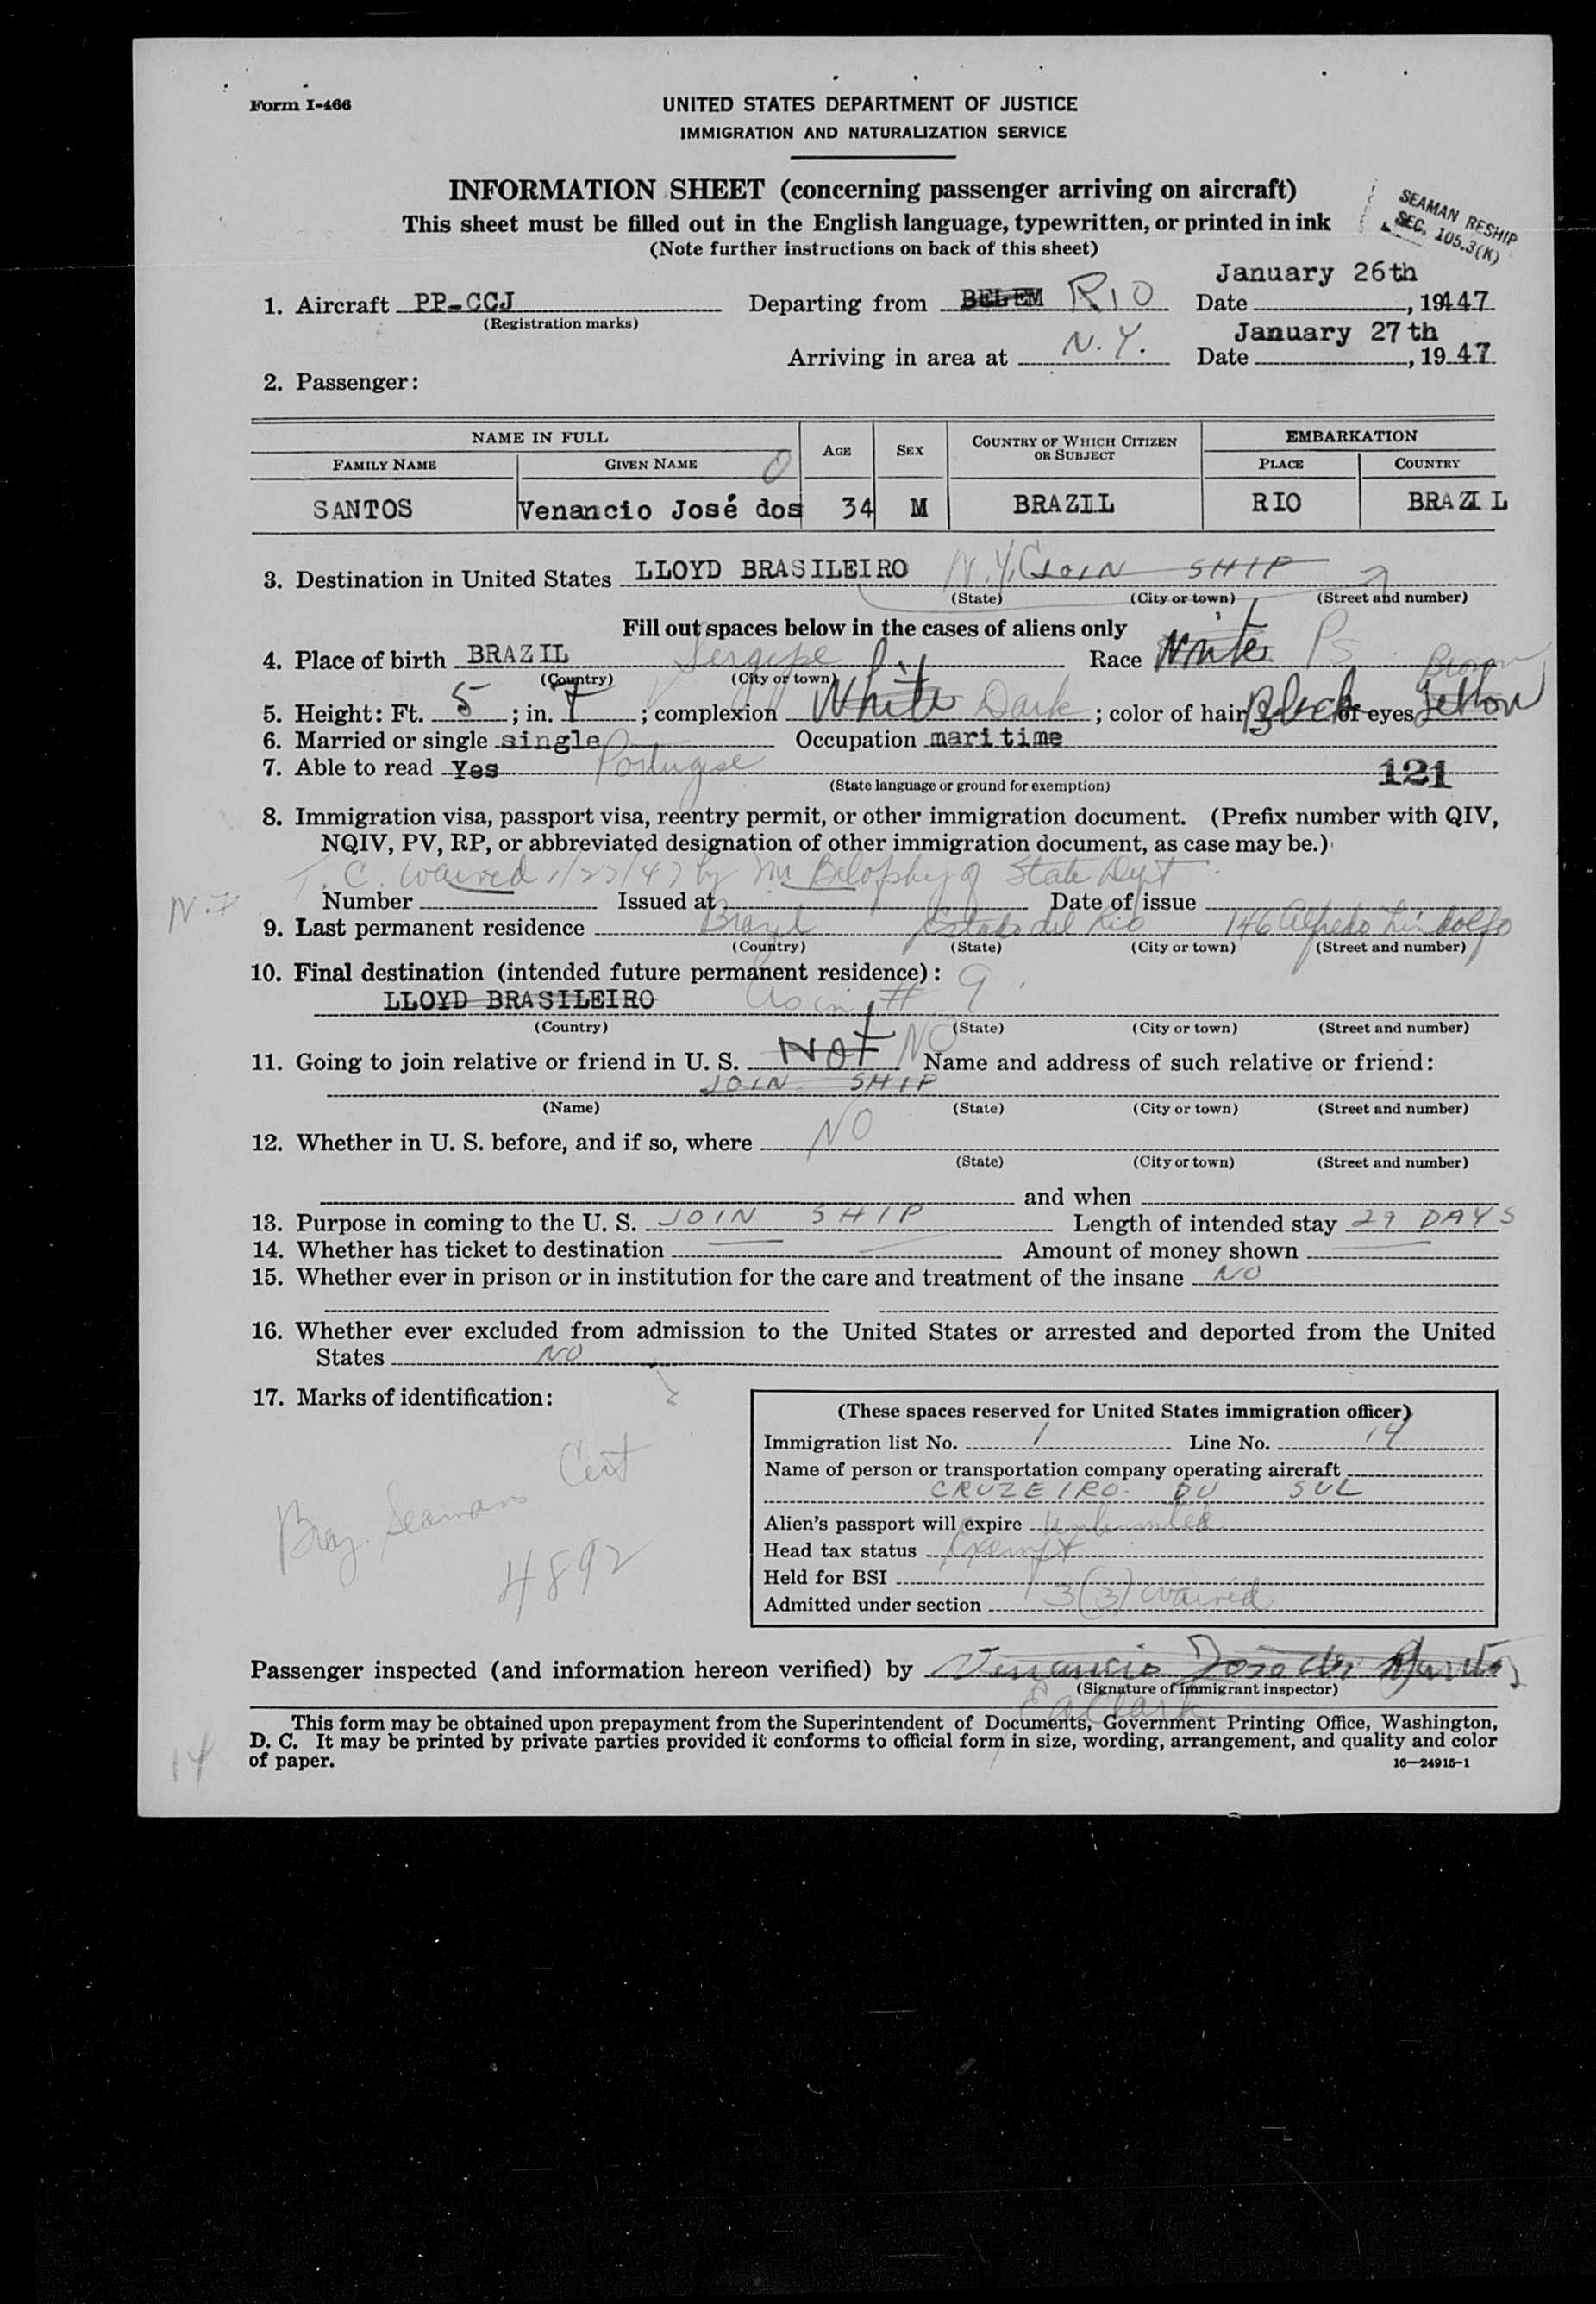 Form I-466
UNITED STATES DEPARTMENT OF JUSTICE
IMMIGRATION AND NATURALIZATION SERVICE
INFORMATION SHEET (concerning passenger arriving on aircraft)
This sheet must be filled out in the English language, typewritten, or printed in ink
(Note further instructions on back of this sheet)
SEAMAN RESHIP
SEC. 105.3(K)
January 26th
1. Aircraft PP-CCJ Departing from BELEM RIO Date , 1947
(Registration marks)
January 27th
Arriving in area at N.Y. Date , 19 47
2. Passenger:
NAME IN FULL AGE SEX COUNTRY OF WHICH CITIZEN OR SUBJECT EMBARKATION
FAMILY NAME GIVEN NAME PLACE COUNTRY
SANTOS Venancio José dos 34 M BRAZIL RIO BRAZIL
3. Destination in United States LLOYD BRASILEIRO N.Y. JOIN SHIP
(State) (City or town) (Street and number)
Fill out spaces below in the cases of aliens only
4. Place of birth BRAZIL Sergipe Race White Ps
(Country) (City or town) Brown
5. Height: Ft. 5 ; in. 7 ; complexion White Dark ; color of hair Black of eyes
6. Married or single single Occupation maritime
7. Able to read Yes Portugese 121
(State language or ground for exemption)
8. Immigration visa, passport visa, reentry permit, or other immigration document. (Prefix number with QIV,
NQIV, PV, RP, or abbreviated designation of other immigration document, as case may be.)
T. C. waived 1/27/47 by Mr of State Dept
Number Issued at Date of issue
9. Last permanent residence Brazil Estado del Rio 146 Alfredo Lindolfo
(Country) (State) (City or town) (Street and number)
10. Final destination (intended future permanent residence):
LLOYD BRASILEIRO As in # 9
(Country) (State) (City or town) (Street and number)
11. Going to join relative or friend in U. S. NOT NO Name and address of such relative or friend:
JOIN SHIP
(Name) (State) (City or town) (Street and number)
12. Whether in U. S. before, and if so, where NO
(State) (City or town) (Street and number)
and when
13. Purpose in coming to the U. S. JOIN SHIP Length of intended stay 29 DAYS
14. Whether has ticket to destination Amount of money shown
15. Whether ever in prison or in institution for the care and treatment of the insane NO
16. Whether ever excluded from admission to the United States or arrested and deported from the United
States NO
17. Marks of identification:
Braz. Seamans Cert
4892
(These spaces reserved for United States immigration officer)
Immigration list No. 1 Line No. 14
Name of person or transportation company operating aircraft
CRUZEIRO DU SUL
Alien's passport will expire Unlimited
Head tax status Exempt
Held for BSI
Admitted under section 3(3) waived
Passenger inspected (and information hereon verified) by Venancio José dos Santos
(Signature of immigrant inspector)
EA Clark
This form may be obtained upon prepayment from the Superintendent of Documents, Government Printing Office, Washington,
D. C. It may be printed by private parties provided it conforms to official form in size, wording, arrangement, and quality and color
of paper.
16—24915-1
14